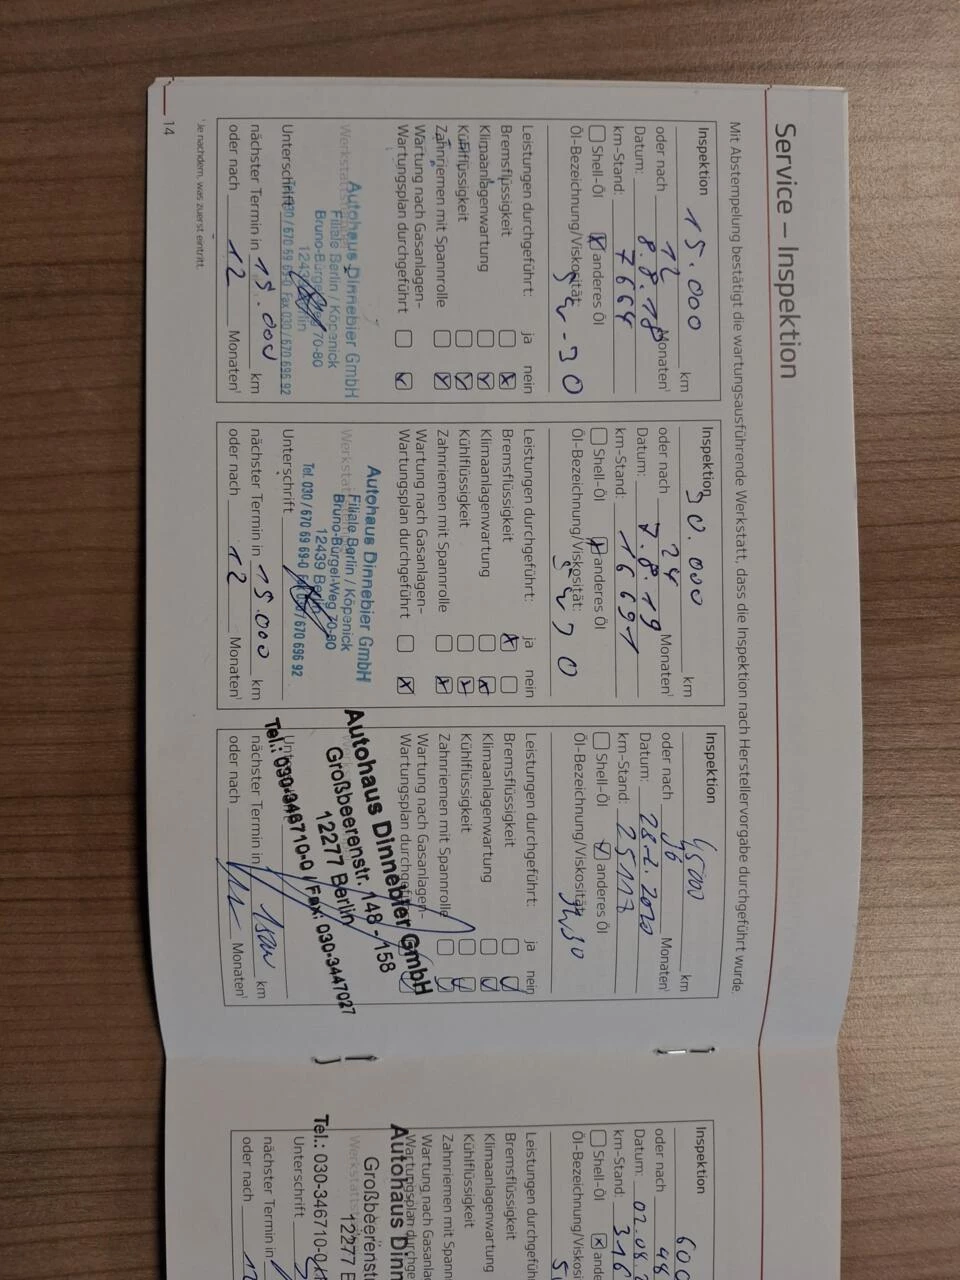 Service – Inspektion
Mit Abstempelung bestätigt die wartungsausführende Werkstatt, dass die Inspektion nach Herstellervorgabe durchgeführt wurde.
Inspektion 15.000 km
oder nach 12 Monaten¹
Datum: 8.8.18
km-Stand: 7664
Shell-Öl x anderes Öl
Öl-Bezeichnung/Viskosität:
5w-30
Leistungen durchgeführt: ja nein
Bremsflüssigkeit
Klimaanlagenwartung
Kühlflüssigkeit
Zahnriemen mit Spannrolle
Wartung nach Gasanlagen-
Wartungsplan durchgeführt
Autohaus Dinnebier GmbH
Filiale Berlin / Köpenick
Bruno-Bürgel-Weg 70-80
12439 Berlin
Tel. 030 / 670 69 69-0 Fax 030 / 670 696 92
Unterschrift
nächster Termin in 15.000 km
oder nach 12 Monaten¹
¹ Je nachdem, was zuerst eintritt.
14
Inspektion 30.000 km
oder nach 24 Monaten¹
Datum: 7.8.19
km-Stand: 16691
Shell-Öl x anderes Öl
Öl-Bezeichnung/Viskosität:
5w30
Leistungen durchgeführt: ja nein
Bremsflüssigkeit
Klimaanlagenwartung
Kühlflüssigkeit
Zahnriemen mit Spannrolle
Wartung nach Gasanlagen-
Wartungsplan durchgeführt
Autohaus Dinnebier GmbH
Filiale Berlin / Köpenick
Bruno-Bürgel-Weg 70-80
12439 Berlin
Tel. 030 / 670 69 69-0 Fax 030 / 670 696 92
Unterschrift
nächster Termin in 15.000 km
oder nach 12 Monaten¹
Inspektion 45000 km
oder nach 36 Monaten¹
Datum: 2020
km-Stand: 25117
Shell-Öl anderes Öl
Öl-Bezeichnung/Viskosität:
Leistungen durchgeführt: ja nein
Bremsflüssigkeit
Klimaanlagenwartung
Kühlflüssigkeit
Zahnriemen mit Spannrolle
Wartung nach Gasanlagen-
Wartungsplan durchgeführt
Autohaus Dinnebier GmbH
Großbeerenstr. 148 - 158
12277 Berlin
Tel.: 030-346710-0 / Fax: 030-3447027
nächster Termin in km
oder nach Monaten¹
Inspektion 600
oder nach 48
Datum: 02.08.2
km-Stand: 316
Shell-Öl x ande
Öl-Bezeichnung/Viskosi
Leistungen durchgefüh
Bremsflüssigkeit
Klimaanlagenwartung
Kühlflüssigkeit
Zahnriemen mit Spann
Wartung nach Gasanla
Wartungsplan durchge
Autohaus Dinn
Großbeerenst
12277 B
Tel.: 030-346710-0
Unterschrift
nächster Termin in
oder nach